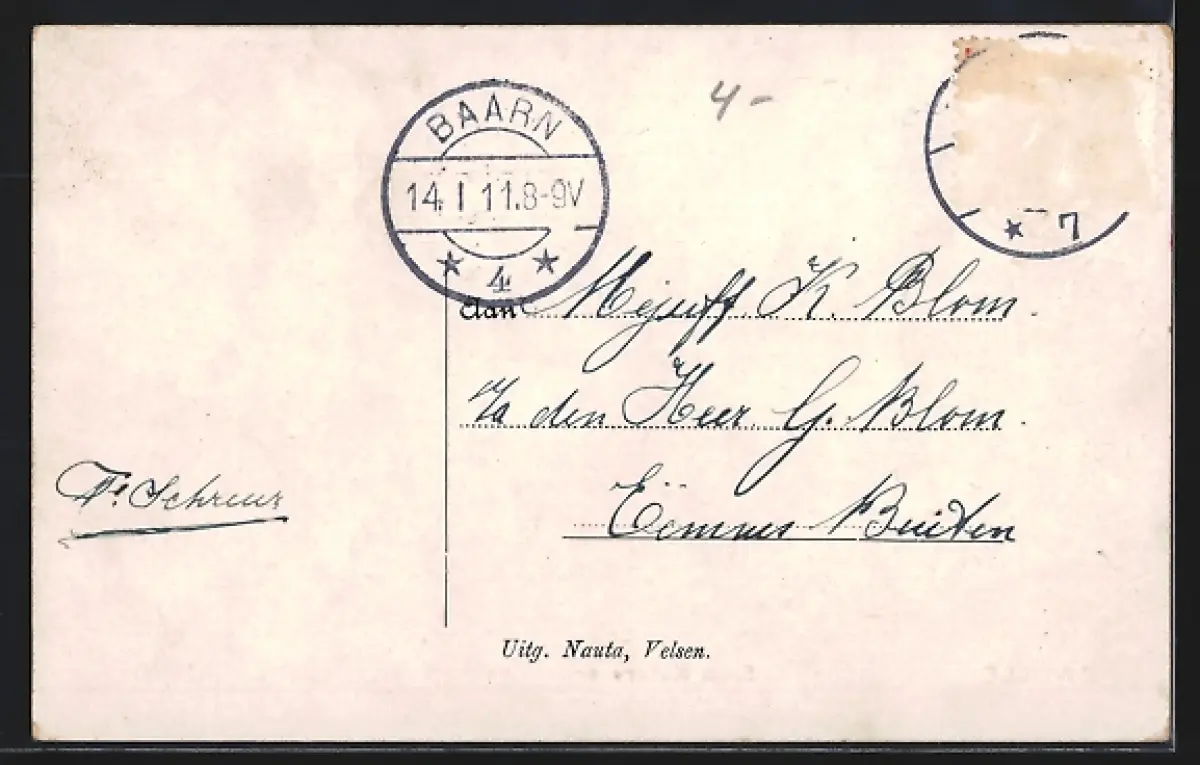 BAARN
14. I 11.8-9V
4
4-
7
Aan Mejuff. K. Blom.
p/a den Heer G. Blom.
Eemnes Buiten
F. Schreur
Uitg. Nauta, Velsen.